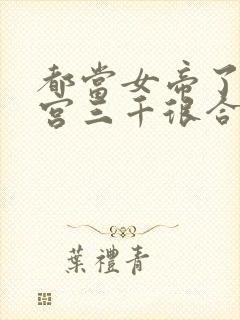 都當女帝了
宮三千很合
葉禮青